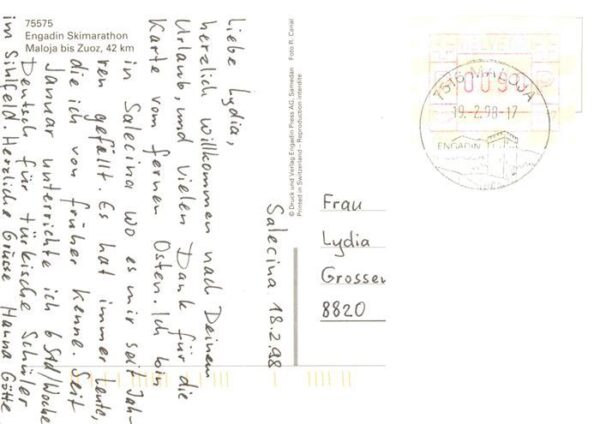 75575
Engadin Skimarathon
Maloja bis Zuoz, 42 km
Foto R. Canal
© Druck und Verlag Engadin Press AG, Samedan
Printed in Switzerland – Reproduction interdite
HELVETIA
009
7516 MALOJA
19.-2.98-17
ENGADIN
Salecina 18.2.98
Liebe Lydia,
herzlich willkommen nach Deinem
Urlaub, und vielen Dank für die
Karte vom fernen Osten. Ich bin
in Salecina wo es mir seit Jah-
ren gefällt. Es hat immer Leute,
die ich von früher kenne. Seit
Januar unterrichte ich 6 Std/Woche
Deutsch für türkische Schüler
im Sihlfeld. Herzliche Grüsse Hanna Götte
Frau
Lydia
Grosser
8820